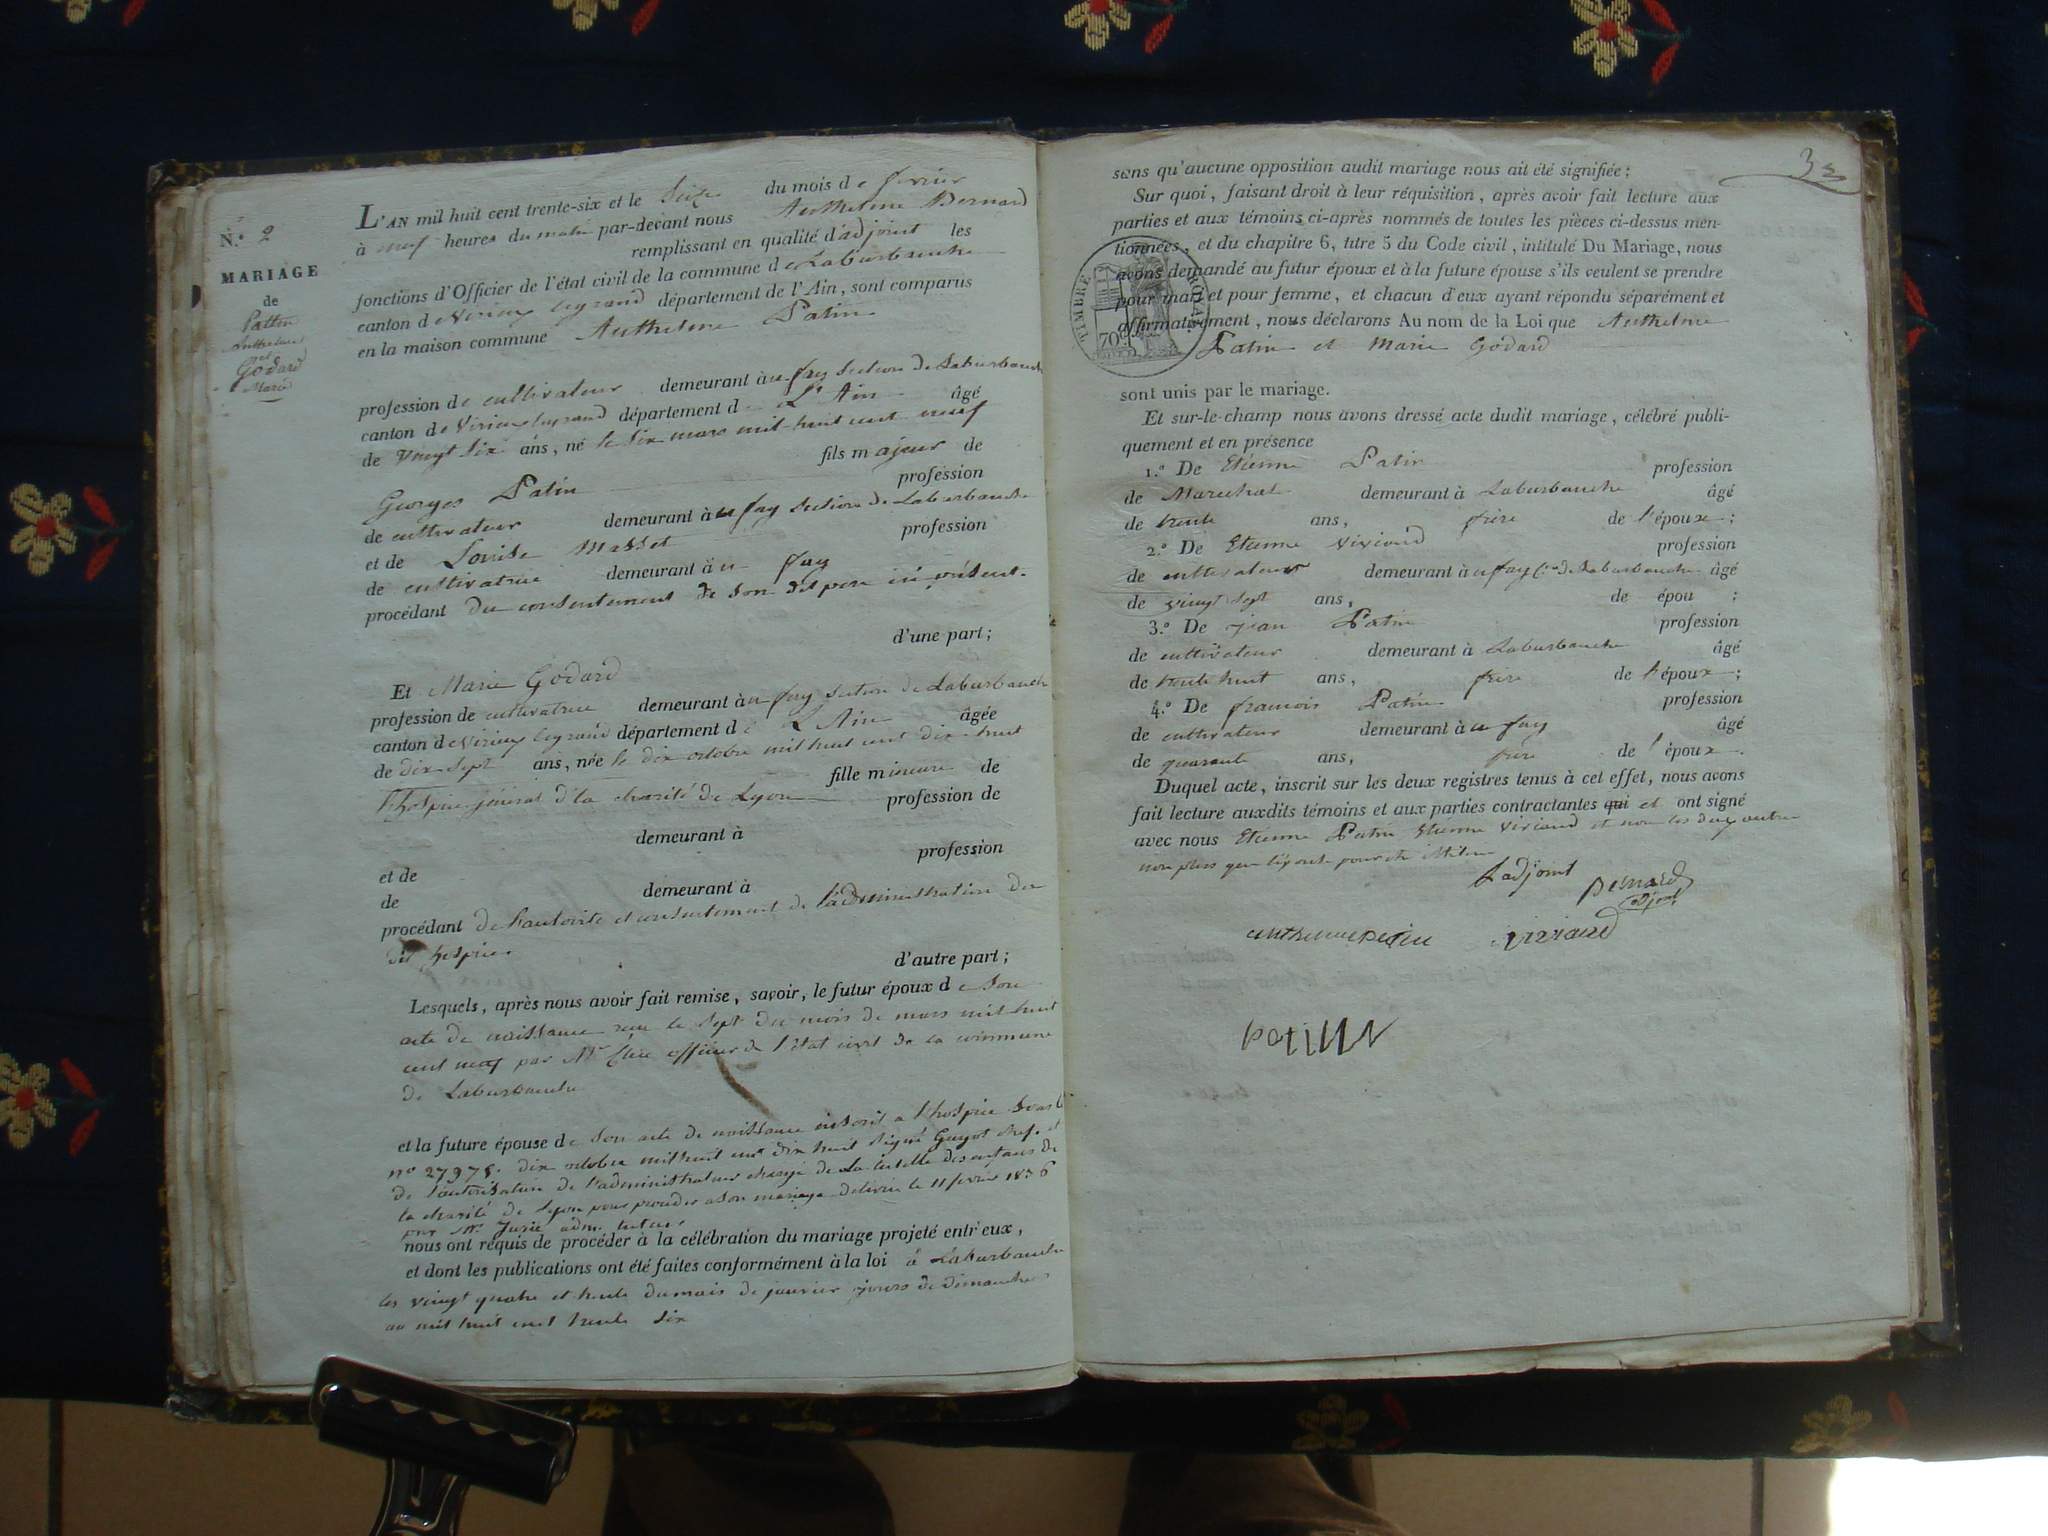 N.º 2
MARIAGE
de
Pattin
Anthelme
et
Godard
Marie
L'AN mil huit cent trente-six et le Seize du mois de fevrier
à neuf heures du matin par-devant nous Anthelme Bernard
remplissant en qualité d'adjoint les
fonctions d'Officier de l'état civil de la commune de Laburbanche
canton de Virieu legrand département de l'Ain, sont comparus
en la maison commune Anthelme Patin
profession de cultivateur demeurant à u fay Section de Laburbanche
canton de Virieu legrand département d L'Ain âgé
de Vingt Six ans, né le Six mars mil huit cent neuf
fils majeur de
Georges Patin profession
de cultivateur demeurant à u fay Section de Laburbanche
et de Louise Masset profession
de cultivatrice demeurant à u fay
procédant du consentement de Son dit pere ici présent.
d'une part;
Et Marie Godard
profession de cultivatrice demeurant à u fay Section de Laburbanche
canton de Virieu legrand département de L'Ain âgée
de dix Sept ans, née le dix octobre mil huit cent dix huit
fille mineure de
l'hospice général d la charité de Lyon profession de
demeurant à
et de profession
de demeurant à
procédant de l'autorité et consentement de l'administration du
dit hospice.
d'autre part;
Lesquels, après nous avoir fait remise, savoir, le futur époux de Son
acte de naissance recu le Sept du mois de mars mil huit
cent neuf par Mr officier de l'état civil de la commune
de Laburbanche
et la future épouse de Son acte de naissance inscrit a l'hospice Sous le
nº 27975. dix octobre mil huit cent dix huit Signé Guyot et
de l'autorisation de l'administrateur chargé de La tutelle des enfans de
la charité de Lyon pour proceder a Son mariage delivrée le 11 fevrier 1836
par Mr Jurie adm. tuteur
nous ont requis de procéder à la célébration du mariage projeté entr'eux,
et dont les publications ont été faites conformément à la loi à Laburbanche
les vingt quatre et trente du mois de janvier jours de dimanche
an mil huit cent trente Six
3
sans qu'aucune opposition audit mariage nous ait été signifiée;
Sur quoi, faisant droit à leur réquisition, après avoir fait lecture aux
parties et aux témoins ci-après nommés de toutes les pièces ci-dessus men-
tionnées, et du chapitre 6, titre 5 du Code civil, intitulé Du Mariage, nous
avons demandé au futur époux et à la future épouse s'ils veulent se prendre
pour mari et pour femme, et chacun d'eux ayant répondu séparément et
affirmativement, nous déclarons Au nom de la Loi que Anthelme
Patin et Marie Godard
TIMBRE ROYAL
70
sont unis par le mariage.
Et sur-le-champ nous avons dressé acte dudit mariage, célébré publi-
quement et en présence
1.º De Etienne Patin profession
de Marechal demeurant à Laburbanche âgé
de trente ans, frère de l'époux;
2.º De Etienne Viviand profession
de cultivateur demeurant à u fay Con de Laburbanche âgé
de vingt Sept ans, de épou ;
3.º De jean Patin profession
de cultivateur demeurant à Laburbanche âgé
de trente huit ans, frère de l'époux;
4.º De francois Patin profession
de cultivateur demeurant à u fay âgé
de quarante ans, frère de l'époux.
Duquel acte, inscrit sur les deux registres tenus à cet effet, nous avons
fait lecture auxdits témoins et aux parties contractantes qui et ont signé
avec nous Etienne Patin Etienne Viviand et non les deux autres
non plus que l'épouse pour
Ladjoint Bernard
adjoint
anthelme patin viviand
patin